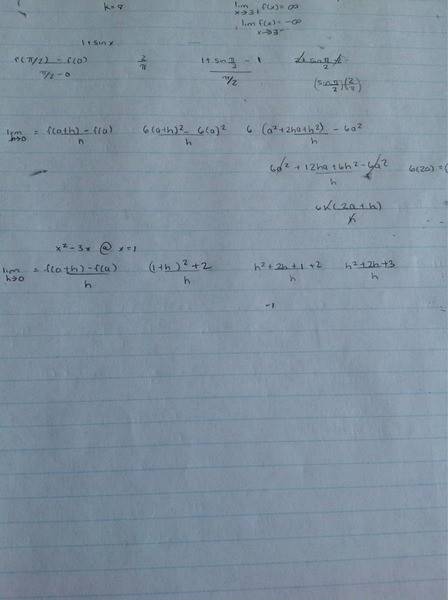 k = 8 lim x→3+ f(x) = ∞
lim f(x) = -∞
x→3-
1 + sin x
f(π/2) - f(0) / π/2 - 0 2/π 1 + sin π/2 - 1 / π/2
(sin π/2)(2/π)
lim h→0 = f(a+h) - f(a) / h 6(a+h)² - 6(a)² / h 6 (a² + 2ha + h²) - 6a² / h
6a² + 12ha + 6h² - 6a² / h 6(2a) = (
6h (2a + h) / h
x² - 3x @ x = 1
lim h→0 = f(a+h) - f(a) / h (1+h)² + 2 / h h² + 2h + 1 + 2 / h h² + 2h + 3 / h
-1